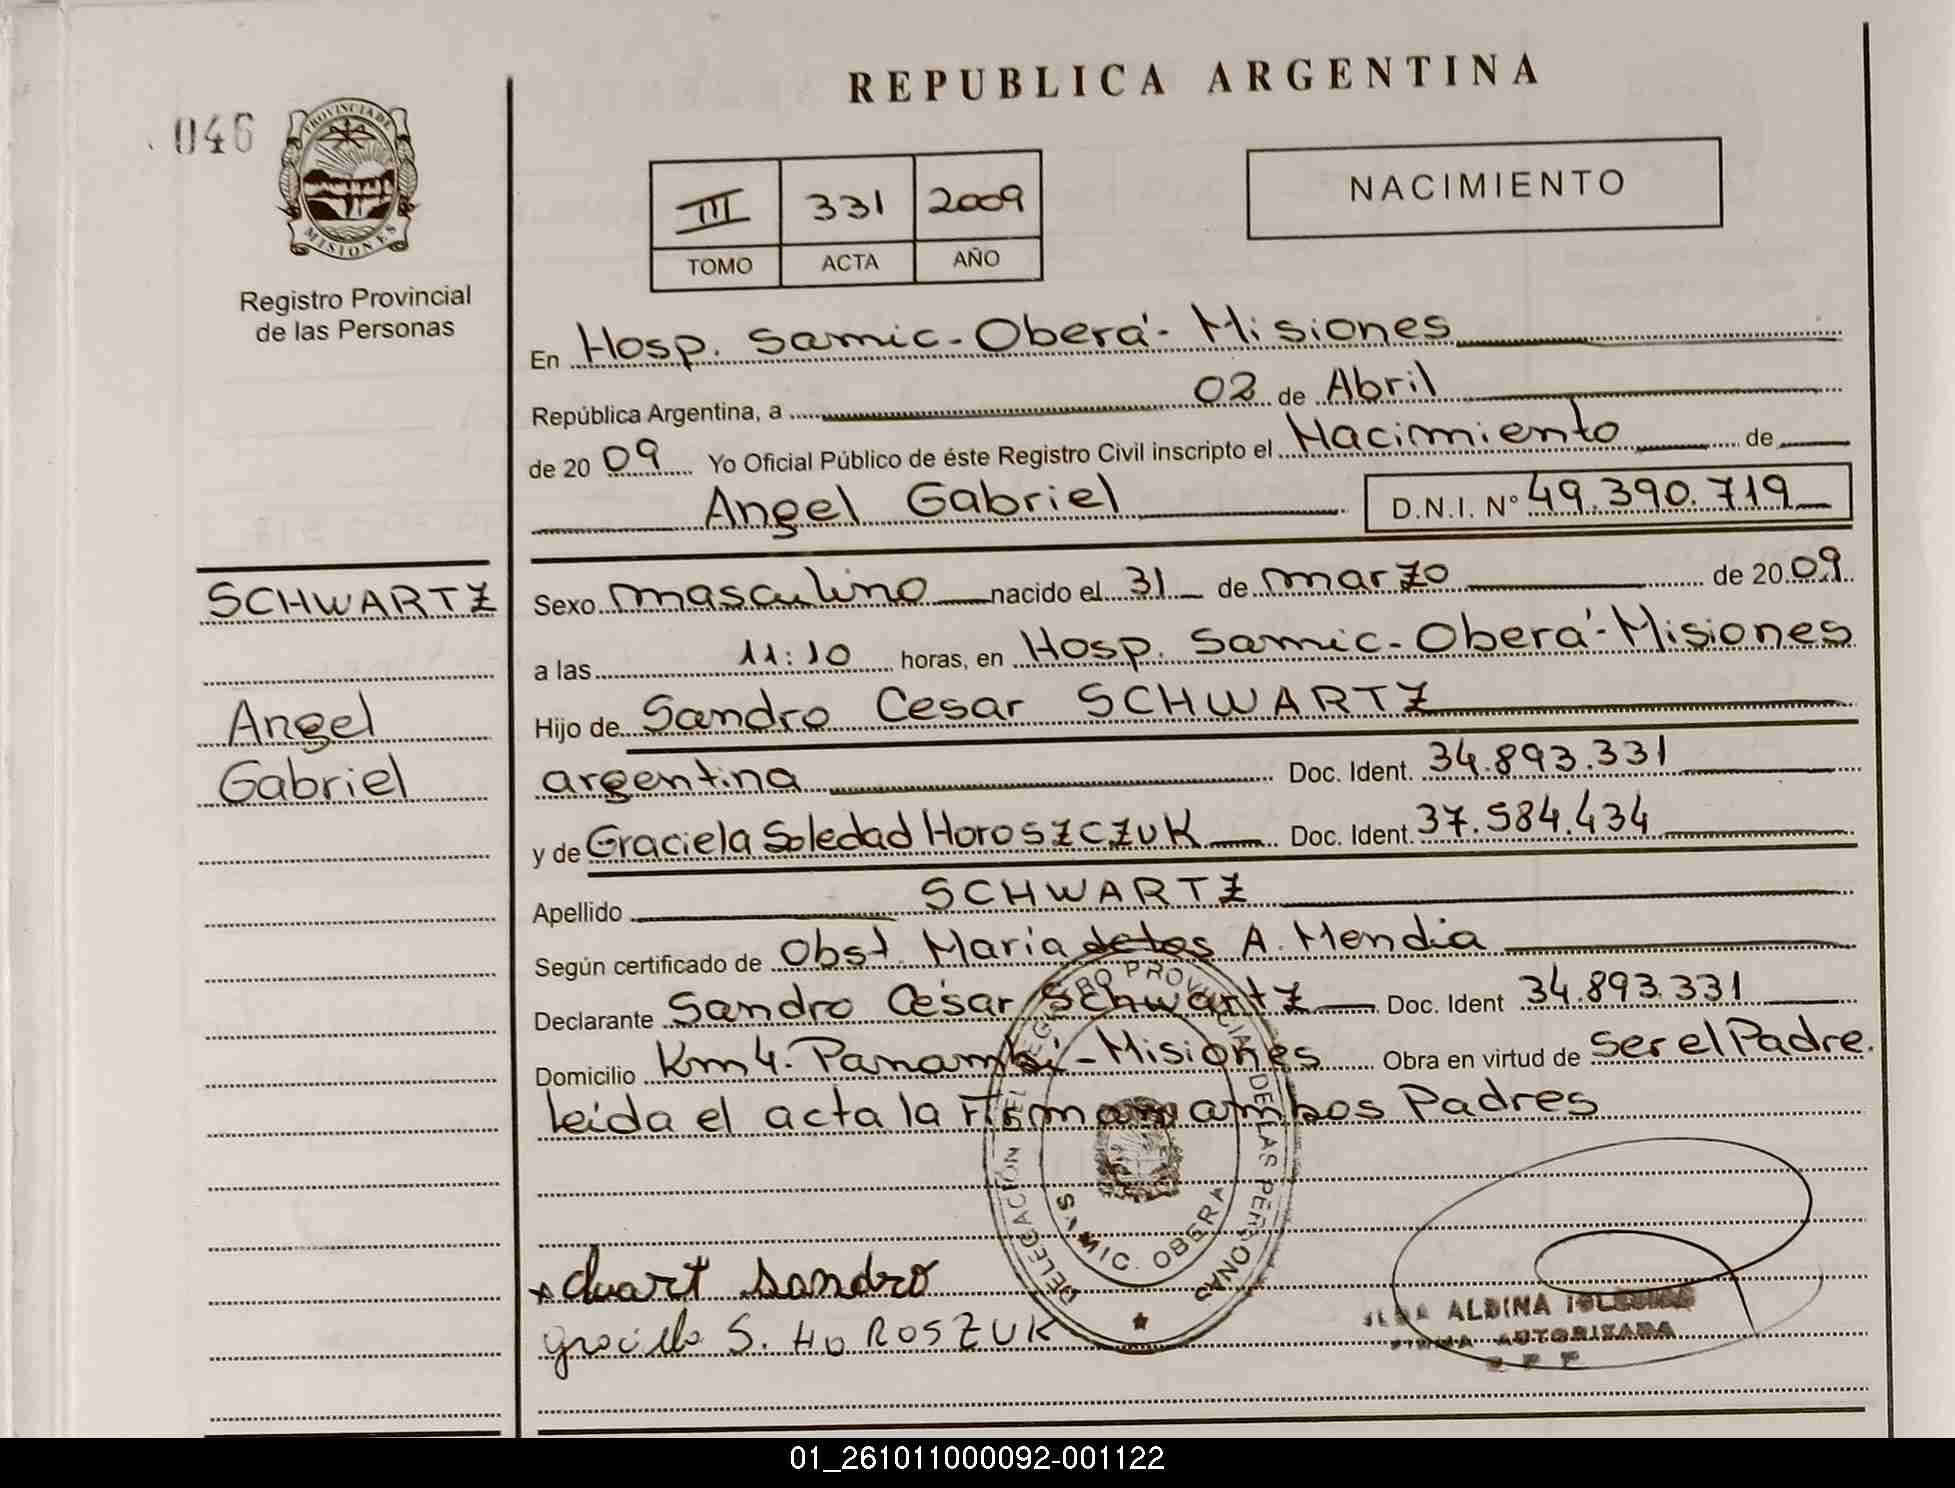 REPUBLICA ARGENTINA
046
PROVINCIA DE MISIONES
Registro Provincial
de las Personas
III 331 2009
TOMO ACTA AÑO
NACIMIENTO
En Hosp. Samic-Oberá-Misiones
República Argentina, a 02 de Abril
de 20 09 Yo Oficial Público de éste Registro Civil inscripto el Nacimiento de
Angel Gabriel D.N.I. Nº 49.390.719
SCHWARTZ
Angel
Gabriel
Sexo masculino nacido el 31 de marzo de 20 09
a las 11:10 horas, en Hosp. Samic-Oberá-Misiones
Hijo de Sandro Cesar SCHWARTZ
argentina Doc. Ident. 34.893.331
y de Graciela Soledad HoroszczuK Doc. Ident. 37.584.434
Apellido SCHWARTZ
Según certificado de Obst. María de los A. Mendia
Declarante Sandro César Schwartz Doc. Ident 34.893.331
Domicilio Km 4. Panambí-Misiones Obra en virtud de Ser el Padre.
leída el acta la firman ambos Padres
DELEGACIÓN DEL REGISTRO PROVINCIAL DE LAS PERSONAS
SAMIC. OBERA
Sandro
S. HOROSZUK
ALBINA IGLESIAS
FIRMA AUTORIZADA
01_261011000092-001122